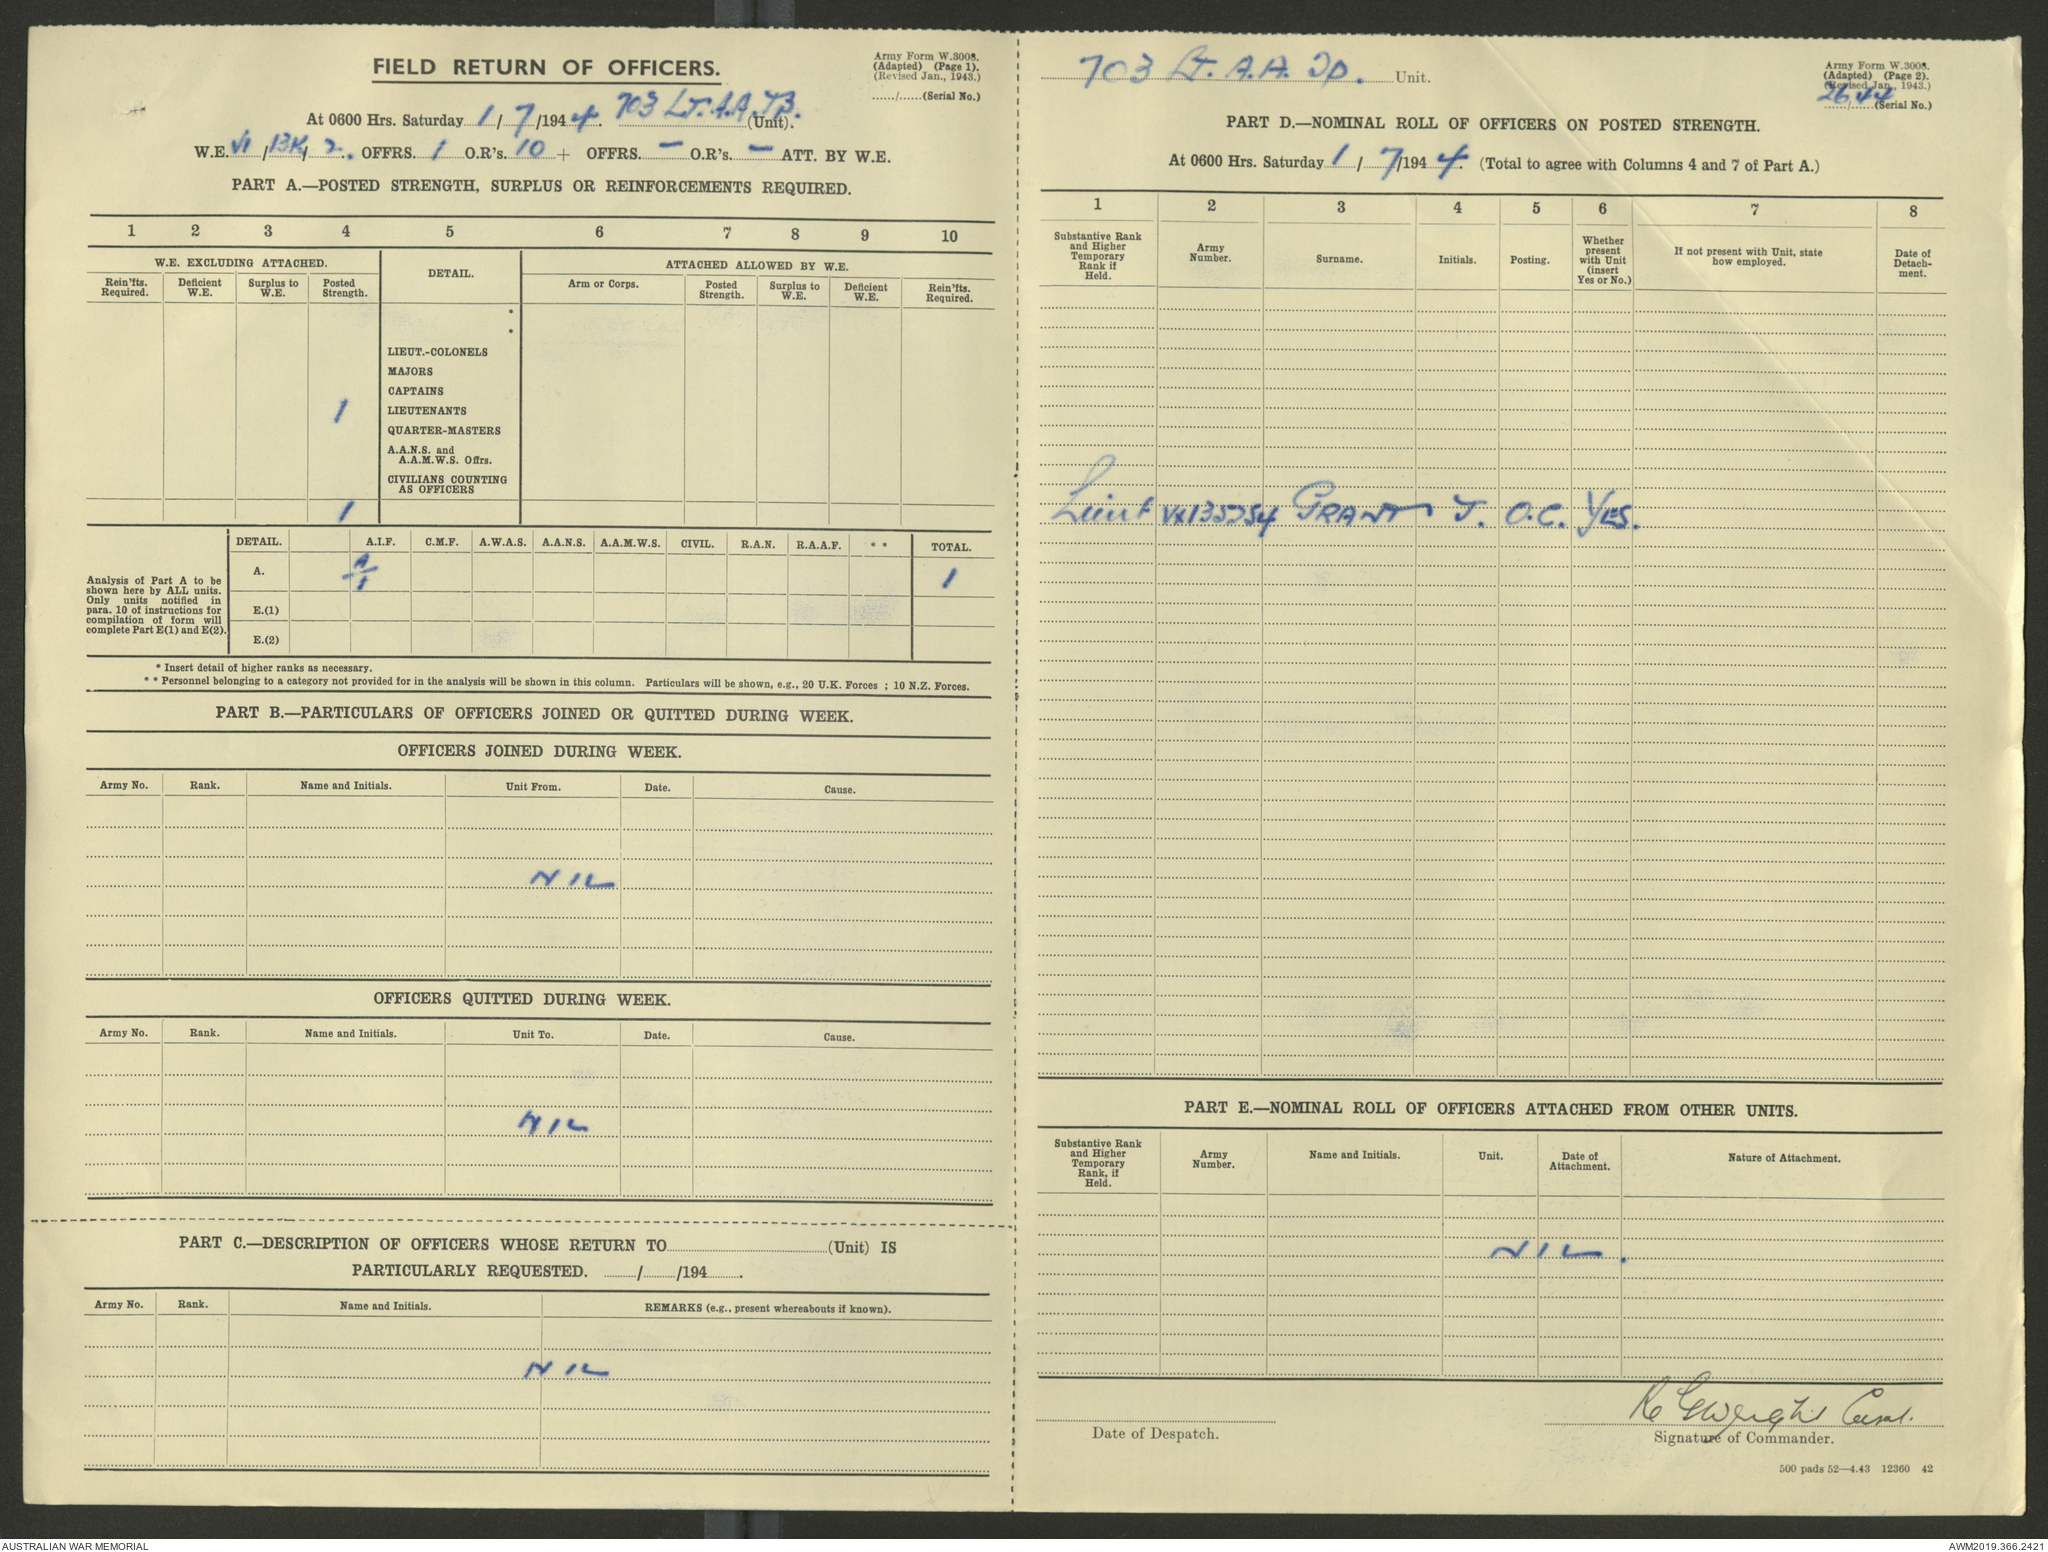 FIELD RETURN OF OFFICERS.
Army Form W.3008.
(Adapted) (Page 1).
(Revised Jan., 1943.)
....../......(Serial No.)
At 0600 Hrs. Saturday 1/7/1944. 703 Lt. A.A. (Unit).
W.E. VI/13K/2. OFFRS. 1 O.R's. 10 + OFFRS. — O.R's. — ATT. BY W.E.
PART A.—POSTED STRENGTH, SURPLUS OR REINFORCEMENTS REQUIRED.
1 2 3 4 5 6 7 8 9 10
W.E. EXCLUDING ATTACHED. DETAIL. ATTACHED ALLOWED BY W.E.
Rein'fts. Required. Deficient W.E. Surplus to W.E. Posted Strength. Arm or Corps. Posted Strength. Surplus to W.E. Deficient W.E. Rein'fts. Required.
*
*
LIEUT.-COLONELS
MAJORS
CAPTAINS
1 LIEUTENANTS
QUARTER-MASTERS
A.A.N.S. and
A.A.M.W.S. Offrs.
CIVILIANS COUNTING
AS OFFICERS
1
DETAIL. A.I.F. C.M.F. A.W.A.S. A.A.N.S. A.A.M.W.S. CIVIL. R.A.N. R.A.A.F. * * TOTAL.
Analysis of Part A to be
shown here by ALL units.
Only units notified in
para. 10 of instructions for
compilation of form will
complete Part E(1) and E(2).
A. A/1 1
E.(1)
E.(2)
* Insert detail of higher ranks as necessary.
* * Personnel belonging to a category not provided for in the analysis will be shown in this column. Particulars will be shown, e.g., 20 U.K. Forces ; 10 N.Z. Forces.
PART B.—PARTICULARS OF OFFICERS JOINED OR QUITTED DURING WEEK.
OFFICERS JOINED DURING WEEK.
Army No. Rank. Name and Initials. Unit From. Date. Cause.
NIL
OFFICERS QUITTED DURING WEEK.
Army No. Rank. Name and Initials. Unit To. Date. Cause.
NIL
PART C.—DESCRIPTION OF OFFICERS WHOSE RETURN TO..............(Unit) IS
PARTICULARLY REQUESTED. ......../......../194........
Army No. Rank. Name and Initials. REMARKS (e.g., present whereabouts if known).
NIL
703 Lt. A.A. Unit.
Army Form W.3008.
(Adapted) (Page 2).
(Revised Jan., 1943.)
2644 (Serial No.)
PART D.—NOMINAL ROLL OF OFFICERS ON POSTED STRENGTH.
At 0600 Hrs. Saturday 1/7/1944. (Total to agree with Columns 4 and 7 of Part A.)
1 2 3 4 5 6 7 8
Substantive Rank and Higher Temporary Rank if Held. Army Number. Surname. Initials. Posting. Whether present with Unit (insert Yes or No.) If not present with Unit, state how employed. Date of Detach-ment.
Lieut GRANT J. O.C. YES.
PART E.—NOMINAL ROLL OF OFFICERS ATTACHED FROM OTHER UNITS.
Substantive Rank and Higher Temporary Rank, if Held. Army Number. Name and Initials. Unit. Date of Attachment. Nature of Attachment.
NIL.
Wright
Date of Despatch. Signature of Commander.
500 pads 52—4.43 12360 42
AUSTRALIAN WAR MEMORIAL AWM2019.366.2421